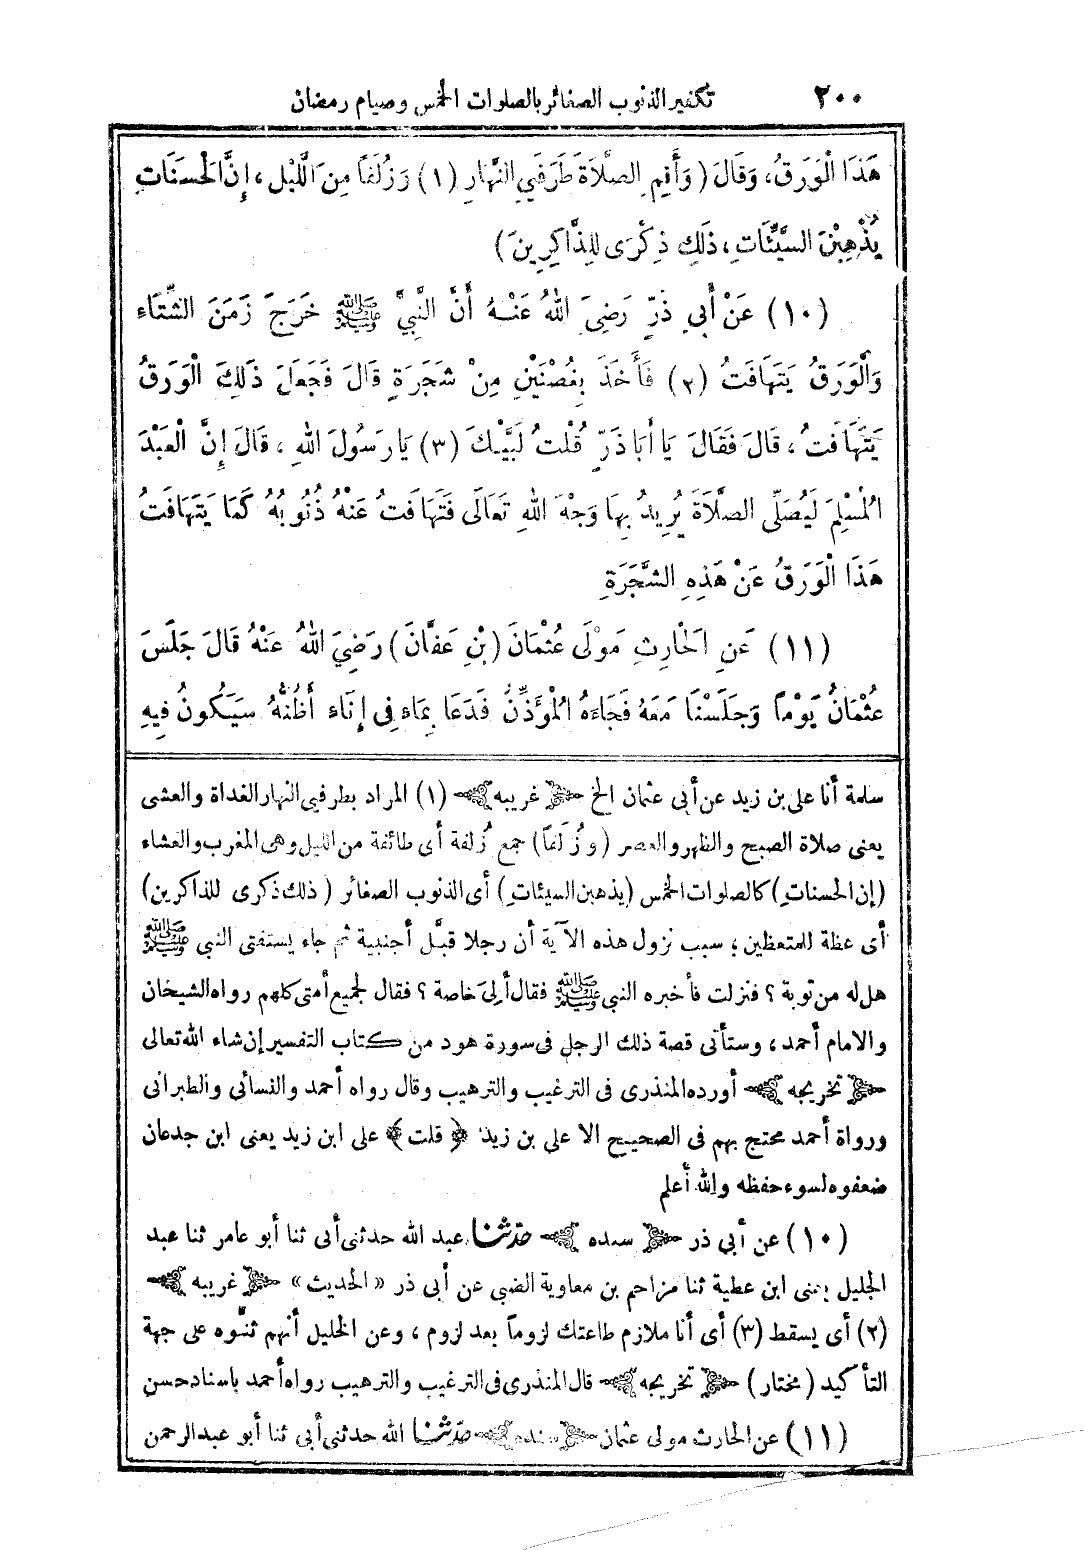 ٢٠٠ تكفير الذنوب الصغائر بالصلوات الخمس وصيام رمضان
هَذَا الْوَرَقُ، وَقَالَ (وَأَقِمِ الصَّلَاةَ طَرَفَيِ النَّهَارِ (١) وَزُلَفًا مِنَ اللَّيْلِ، إِنَّ الْحَسَنَاتِ
يُذْهِبْنَ السَّيِّئَاتِ، ذَلِكَ ذِكْرَى لِلذَّاكِرِينَ)
(١٠) عَنْ أَبِي ذَرٍّ رَضِيَ اللهُ عَنْهُ أَنَّ النَّبِيَّ ﷺ خَرَجَ زَمَنَ الشِّتَاءِ
وَالْوَرَقُ يَتَهَافَتُ (٢) فَأَخَذَ بِغُصْنَيْنِ مِنْ شَجَرَةٍ قَالَ فَجَعَلَ ذَلِكَ الْوَرَقُ
يَتَهَافَتُ، قَالَ فَقَالَ يَا أَبَا ذَرٍّ قُلْتُ لَبَّيْكَ (٣) يَا رَسُولَ اللهِ، قَالَ إِنَّ الْعَبْدَ
الْمُسْلِمَ لَيُصَلِّى الصَّلَاةَ يُرِيدُ بِهَا وَجْهَ اللهِ تَعَالَى فَتَهَافَتُ عَنْهُ ذُنُوبُهُ كَمَا يَتَهَافَتُ
هَذَا الْوَرَقُ عَنْ هَذِهِ الشَّجَرَةِ
(١١) عَنِ الْحَارِثِ مَوْلَى عُثْمَانَ (بْنِ عَفَّانَ) رَضِيَ اللهُ عَنْهُ قَالَ جَلَسَ
عُثْمَانُ يَوْمًا وَجَلَسْنَا مَعَهُ فَجَاءَهُ الْمُؤَذِّنُ فَدَعَا بِمَاءٍ فِي إِنَاءٍ أَظُنُّهُ سَيَكُونُ فِيهِ
سلمة أنا على بن زيد عن أبى عثمان الخ ﴿غريبه﴾ (١) المراد بطرفي النهار الغداة والعشى
يعنى صلاة الصبح والظهر والعصر (وزُلَفاً) جمع زُلفة أى طائفة من الليل وهى المغرب والعشاء
(إن الحسنات) كالصلوات الخمس (يذهبن السيئات) أى الذنوب الصغائر (ذلك ذكرى للذاكرين)
أى عظة للمتعظين؛ سبب نزول هذه الآية أن رجلا قبَّل أجنبية ثم جاء يستفتى النبي ﷺ
هل له من توبة؟ فنزلت فأخبره النبي ﷺ فقال أَلِىَ خاصة؟ فقال لجميع أمتى كلهم رواه الشيخان
والامام أحمد، وستأتى قصة ذلك الرجل فى سورة هود من كتاب التفسير إن شاء الله تعالى
﴿تخريجه﴾ أورده المنذرى فى الترغيب والترهيب وقال رواه أحمد والنسائى والطبرانى
ورواة أحمد محتج بهم فى الصحيح الا على بن زيد ﴿قلت﴾ على ابن زيد يعنى ابن جدعان
ضعفوه لسوء حفظه والله أعلم
(١٠) عن أبي ذر ﴿سنده﴾ حدثنا عبد الله حدثنى أبى ثنا أبو عامر ثنا عبد
الجليل يعنى ابن عطية ثنا مزاحم بن معاوية الضبي عن أبى ذر «الحديث» ﴿غريبه﴾
(٢) أى يسقط (٣) أى أنا ملازم طاعتك لزوماً بعد لزوم، وعن الخليل أنهم ثنَّوه على جهة
التأكيد (مختار) ﴿تخريجه﴾ قال المنذرى فى الترغيب والترهيب رواه أحمد باسناد حسن
(١١) عن الحارث مولى عثمان ﴿سنده﴾ حدثنا الله حدثنى أبى ثنا أبو عبد الرحمن